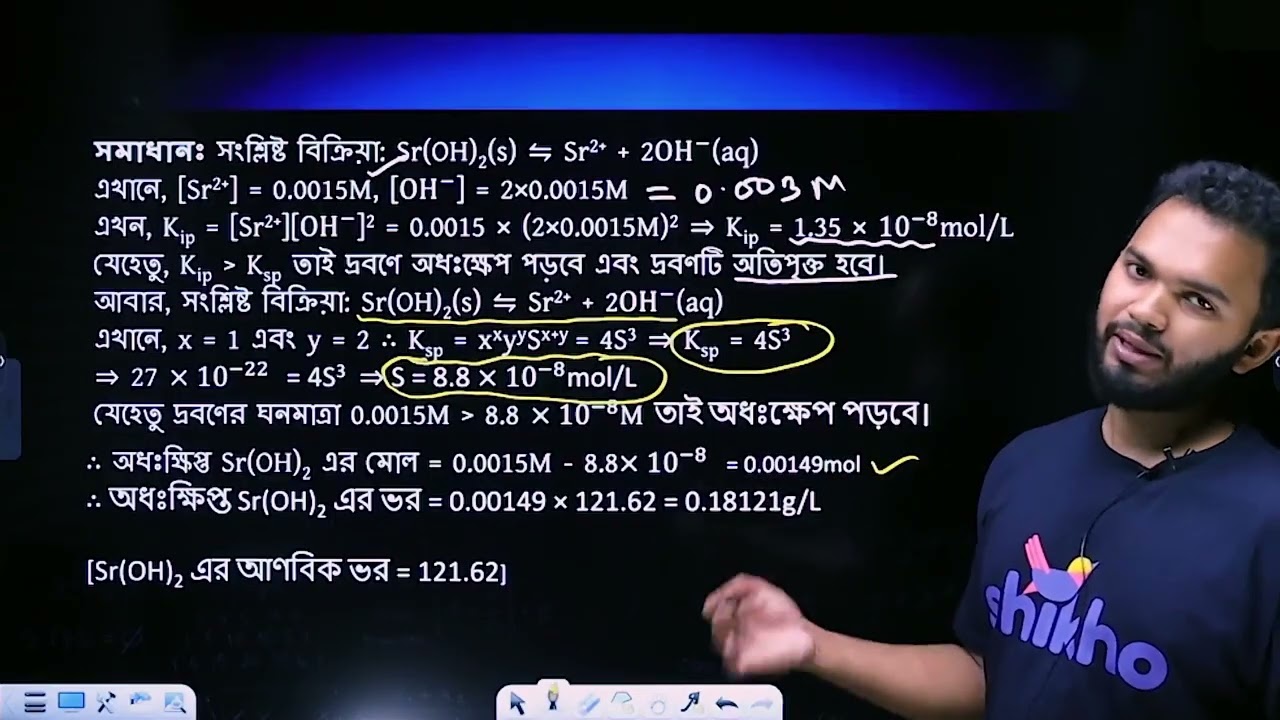 সমাধানঃ সংশ্লিষ্ট বিক্রিয়া: Sr(OH)₂(s) ⇋ Sr²⁺ + 2OH⁻(aq)
এখানে, [Sr²⁺] = 0.0015M, [OH⁻] = 2×0.0015M = 0.003 M
এখন, Kᵢₚ = [Sr²⁺][OH⁻]² = 0.0015 × (2×0.0015M)² ⇒ Kᵢₚ = 1.35 × 10⁻⁸mol/L
যেহেতু, Kᵢₚ > Kₛₚ তাই দ্রবণে অধঃক্ষেপ পড়বে এবং দ্রবণটি অতিপৃক্ত হবে।
আবার, সংশ্লিষ্ট বিক্রিয়া: Sr(OH)₂(s) ⇋ Sr²⁺ + 2OH⁻(aq)
এখানে, x = 1 এবং y = 2 ∴ Kₛₚ = xˣyʸSˣ⁺ʸ = 4S³ ⇒ Kₛₚ = 4S³
⇒ 27 × 10⁻²² = 4S³ ⇒ S = 8.8 × 10⁻⁸mol/L
যেহেতু দ্রবণের ঘনমাত্রা 0.0015M > 8.8 × 10⁻⁸M তাই অধঃক্ষেপ পড়বে।
∴ অধঃক্ষিপ্ত Sr(OH)₂ এর মোল = 0.0015M - 8.8× 10⁻⁸ = 0.00149mol
∴ অধঃক্ষিপ্ত Sr(OH)₂ এর ভর = 0.00149 × 121.62 = 0.18121g/L
[Sr(OH)₂ এর আণবিক ভর = 121.62]
shikho